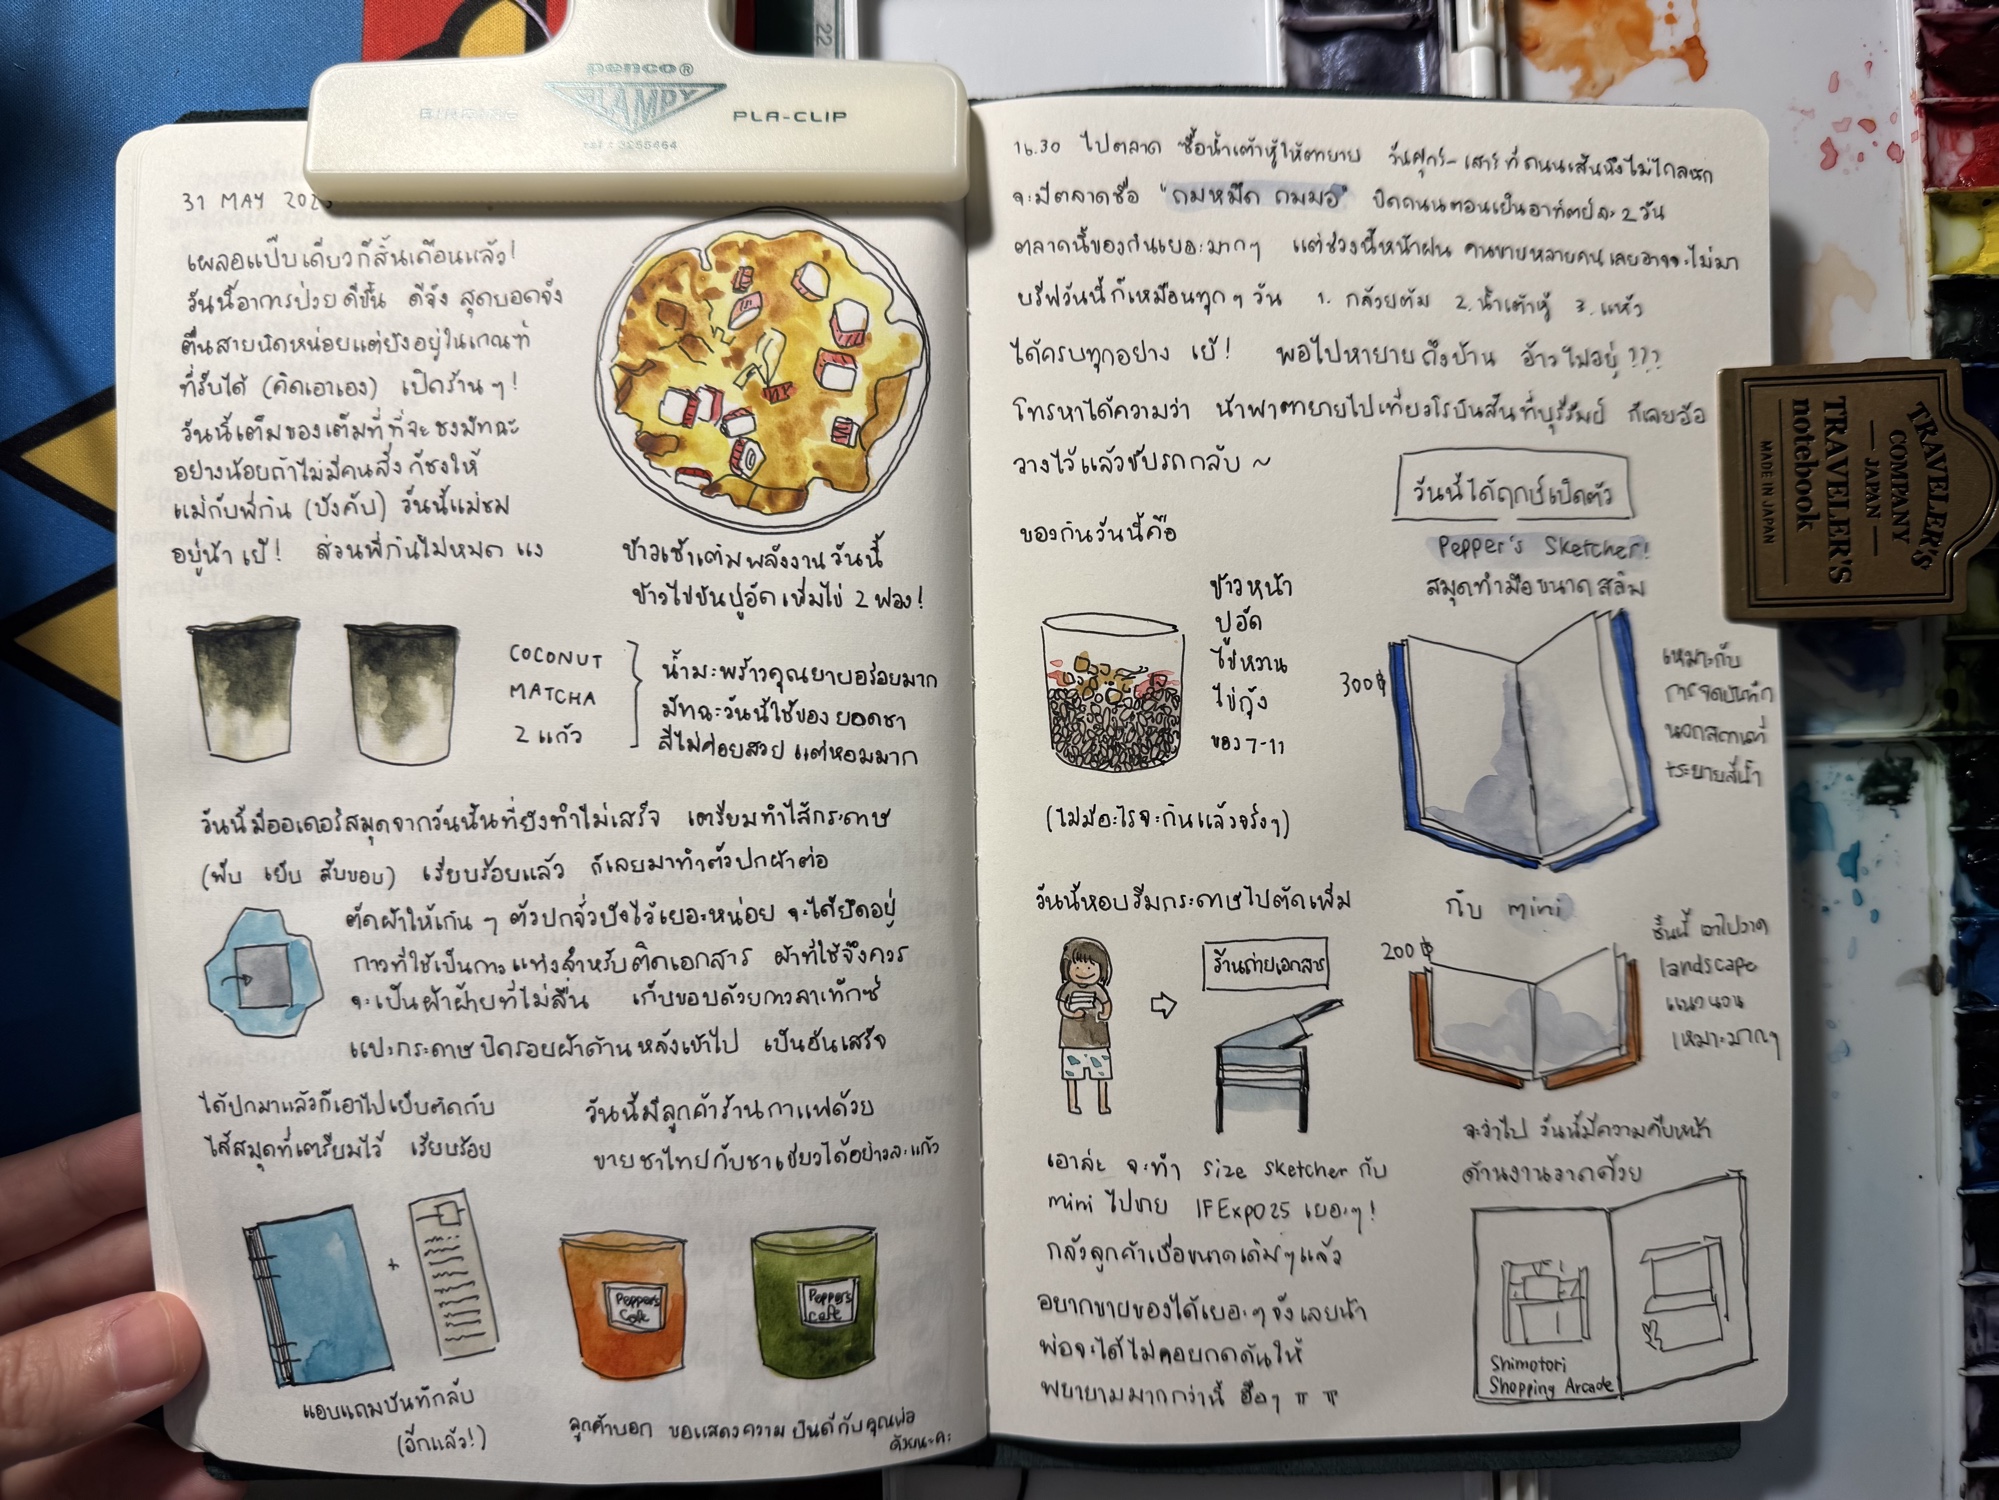 penco®
CLAMPY
PLA-CLIP
22
31 MAY 202
เผลอแป๊บเดียวก็สิ้นเดือนแล้ว!
วันนี้อาการป่วยดีขึ้น ดีจัง สุดยอดจัง
ตื่นสายนิดหน่อยแต่ยังอยู่ในเกณฑ์
ที่รับได้ (คิดเอาเอง) เปิดร้าน ๆ!
วันนี้เต็มของเต็มที่ที่จะชงมัทฉะ
อย่างน้อยถ้าไม่มีคนสั่ง ก็ชงให้
แม่กับพี่กัน (บังคับ) วันนี้แม่ชม
อยู่น้า เย้! ส่วนพี่กันไม่หมด แง
ข้าวเช้าเติมพลังงานวันนี้
ข้าวไข่ข้นปูอัด เพิ่มไข่ 2 ฟอง!
COCONUT
MATCHA
2 แก้ว
น้ำมะพร้าวคุณยายอร่อยมาก
มัทฉะวันนี้ใช้ของ ยอดชา
สีไม่ค่อยสวย แต่หอมมาก
วันนี้มีออเดอร์สมุดจากวันนั้นที่ยังทำไม่เสร็จ เตรียมทำไส้กระดาษ
(พับ เย็บ สับขอบ) เรียบร้อยแล้ว ก็เลยมาทำตัวปกผ้าต่อ
ตัดผ้าให้เกิน ๆ ตัวปกจั่วปังไว้เยอะหน่อย จะได้ยึดอยู่
กาวที่ใช้เป็นกาวแท่งสำหรับติดเอกสาร ผ้าที่ใช้จึงควร
จะเป็นผ้าฝ้ายที่ไม่ลื่น เก็บขอบด้วยกาวลาเท็กซ์
แปะกระดาษปิดรอยผ้าด้านหลังเข้าไป เป็นอันเสร็จ
ได้ปกมาแล้วก็เอาไปเย็บติดกับ
ไส้สมุดที่เตรียมไว้ เรียบร้อย
วันนี้มีลูกค้าร้านกาแฟด้วย
ขายชาไทยกับชาเขียวได้อย่างละแก้ว
+
Pepper's
Cafe
Pepper's
cafe
แอบแถมบันทึกลับ
(อีกแล้ว!)
ลูกค้าบอก ขอแสดงความยินดีกับคุณพ่อ
ด้วยนะคะ
16.30 ไปตลาด ซื้อน้ำเต้าหู้ให้ตายาย วันศุกร์-เสาร์ ที่ถนนเส้นนึงไม่ไกลนัก
จะมีตลาดชื่อ "ถมหมืด ถมมอ" ปิดถนนตอนเย็นอาทิตย์ละ 2 วัน
ตลาดนี้ของกินเยอะมากๆ แต่ช่วงนี้หน้าฝน คนขายหลายคนเลยอาจจะไม่มา
บรีฟวันนี้ก็เหมือนทุก ๆ วัน 1. กล้วยต้ม 2. น้ำเต้าหู้ 3. แห้ว
ได้ครบทุกอย่าง เย้! พอไปหายายถึงบ้าน อ้าวไม่อยู่ ???
โทรหาได้ความว่า น้าพาตายายไปเที่ยวโรบินสันที่บุรีรัมย์ ก็เลย
วางไว้แล้วขับรถกลับ ~
ของกินวันนี้คือ
ข้าวหน้า
ปูอัด
ไข่หวาน
ไข่กุ้ง
ของ 7-11
(ไม่มีอะไรจะกินแล้วจริงๆ)
วันนี้ได้ฤกษ์เปิดตัว
Pepper's Sketcher!
สมุดทำมือขนาดสลิม
300฿
เหมาะกับ
การจดบันทึก
นอกสถานที่
+ระบายสีน้ำ
กับ mini
200฿
ชิ้นนี้ เอาไปวาด
landscape
แนวนอน
เหมาะมากๆ
วันนี้หอบรีมกระดาษไปตัดเพิ่ม
ร้านถ่ายเอกสาร
เอาล่ะ จะทำ size sketcher กับ
mini ไปขาย IFExpo25 เยอะๆ!
กลัวลูกค้าเบื่อขนาดเดิมๆแล้ว
อยากขายของได้เยอะๆ จังเลยน้า
พ่อจะได้ไม่คอยกดดันให้
พยายามมากกว่านี้ ฮือๆ TT TT
จะว่าไป วันนี้มีความคืบหน้า
ด้านงานวาดด้วย
Shimotori
Shopping Arcade
TRAVELER'S
COMPANY
JAPAN
TRAVELER'S
notebook
MADE IN JAPAN